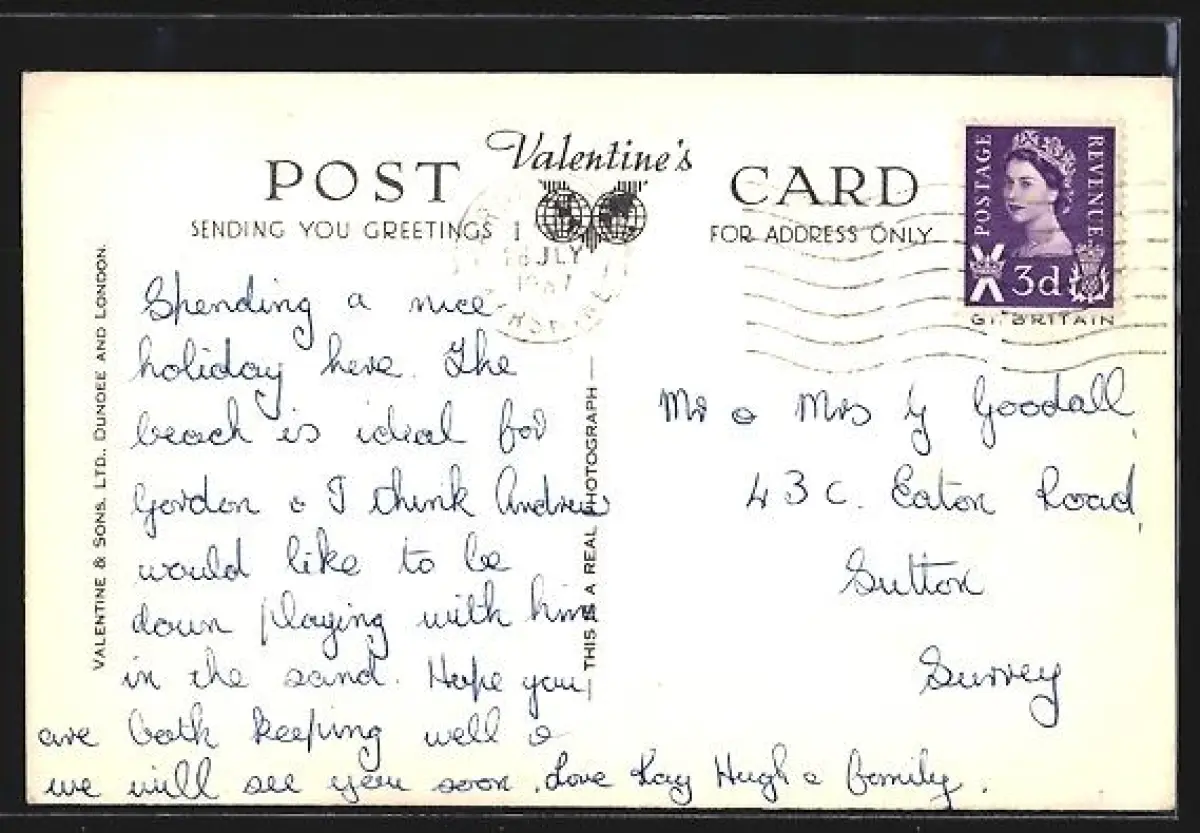 Valentine's
POST CARD
SENDING YOU GREETINGS
FOR ADDRESS ONLY
POSTAGE
REVENUE
3d
GT. BRITAIN
JLY
VALENTINE & SONS, LTD., DUNDEE AND LONDON.
THIS IS A REAL PHOTOGRAPH
Spending a nice
holiday here. The
beach is ideal for
Gordon & I think Andrew
would like to be
down playing with him
in the sand. Hope you
are both keeping well &
we will see you soon. Love Kay Hugh & family.
Mr & Mrs G Goodall,
43C. Eaton Road,
Sutton
Surrey